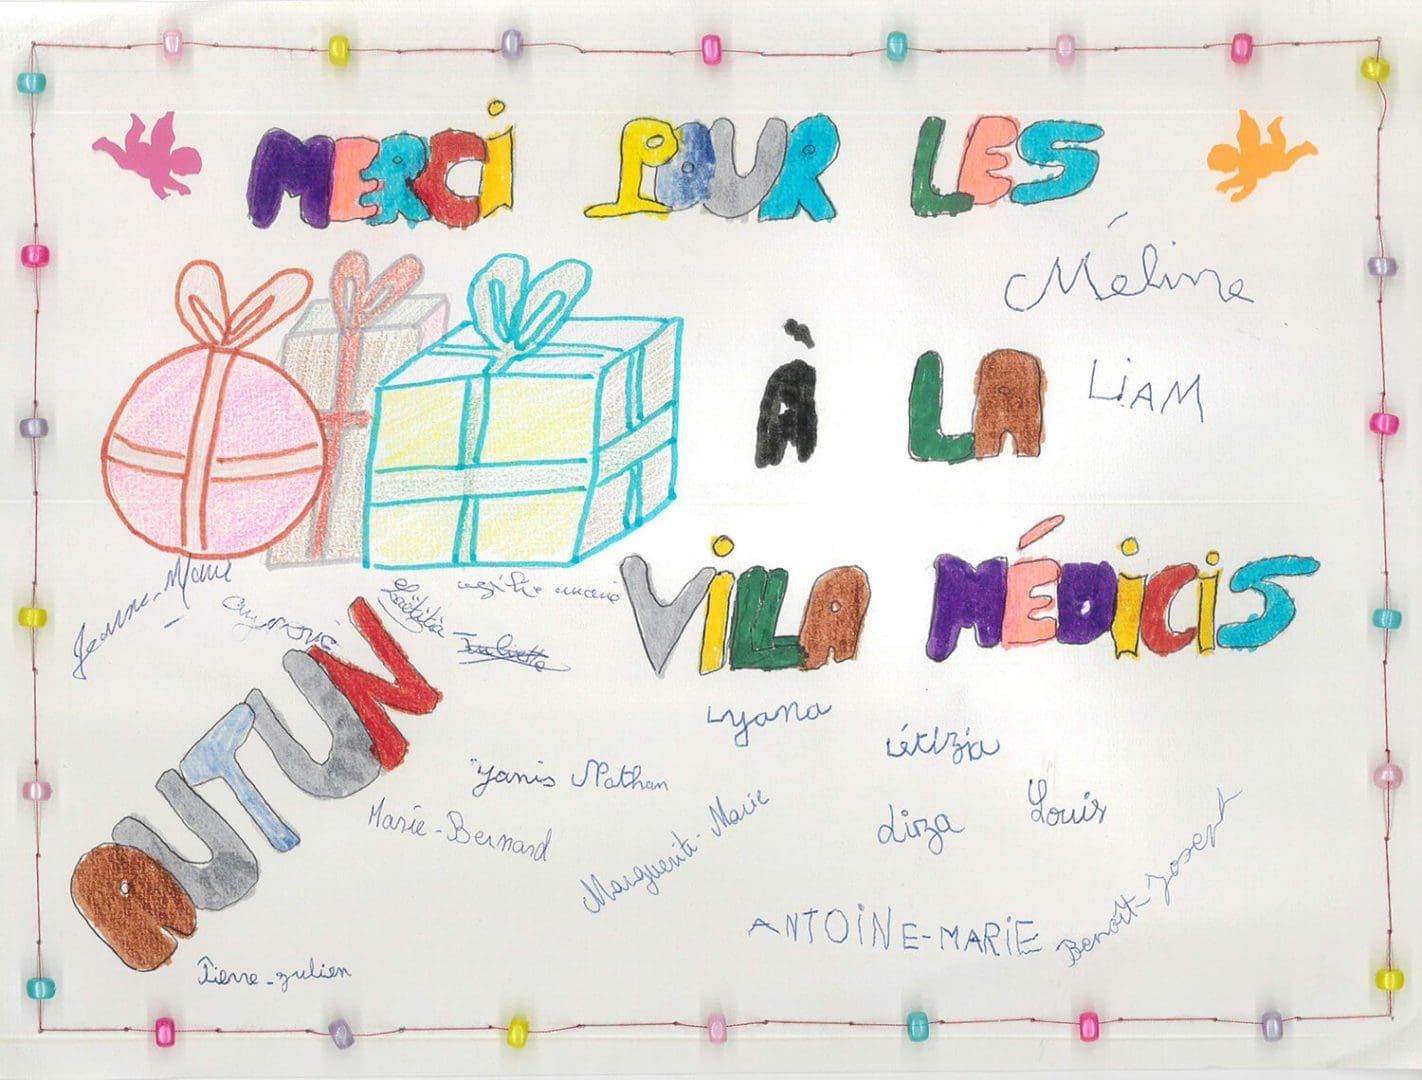 MERCi POUR LES
Méline
À LA
LiAM
ViLLA MÉDiCiS
Jeanne-Marie
Laetitia
Juliette
AUTUN
Lyana
Létizia
Yanis Nathan
Marie-Bernard
Marguerite-Marie
Liza
Louis
ANTOINE-MARiE
Benoît-Joseph
Pierre-Julien